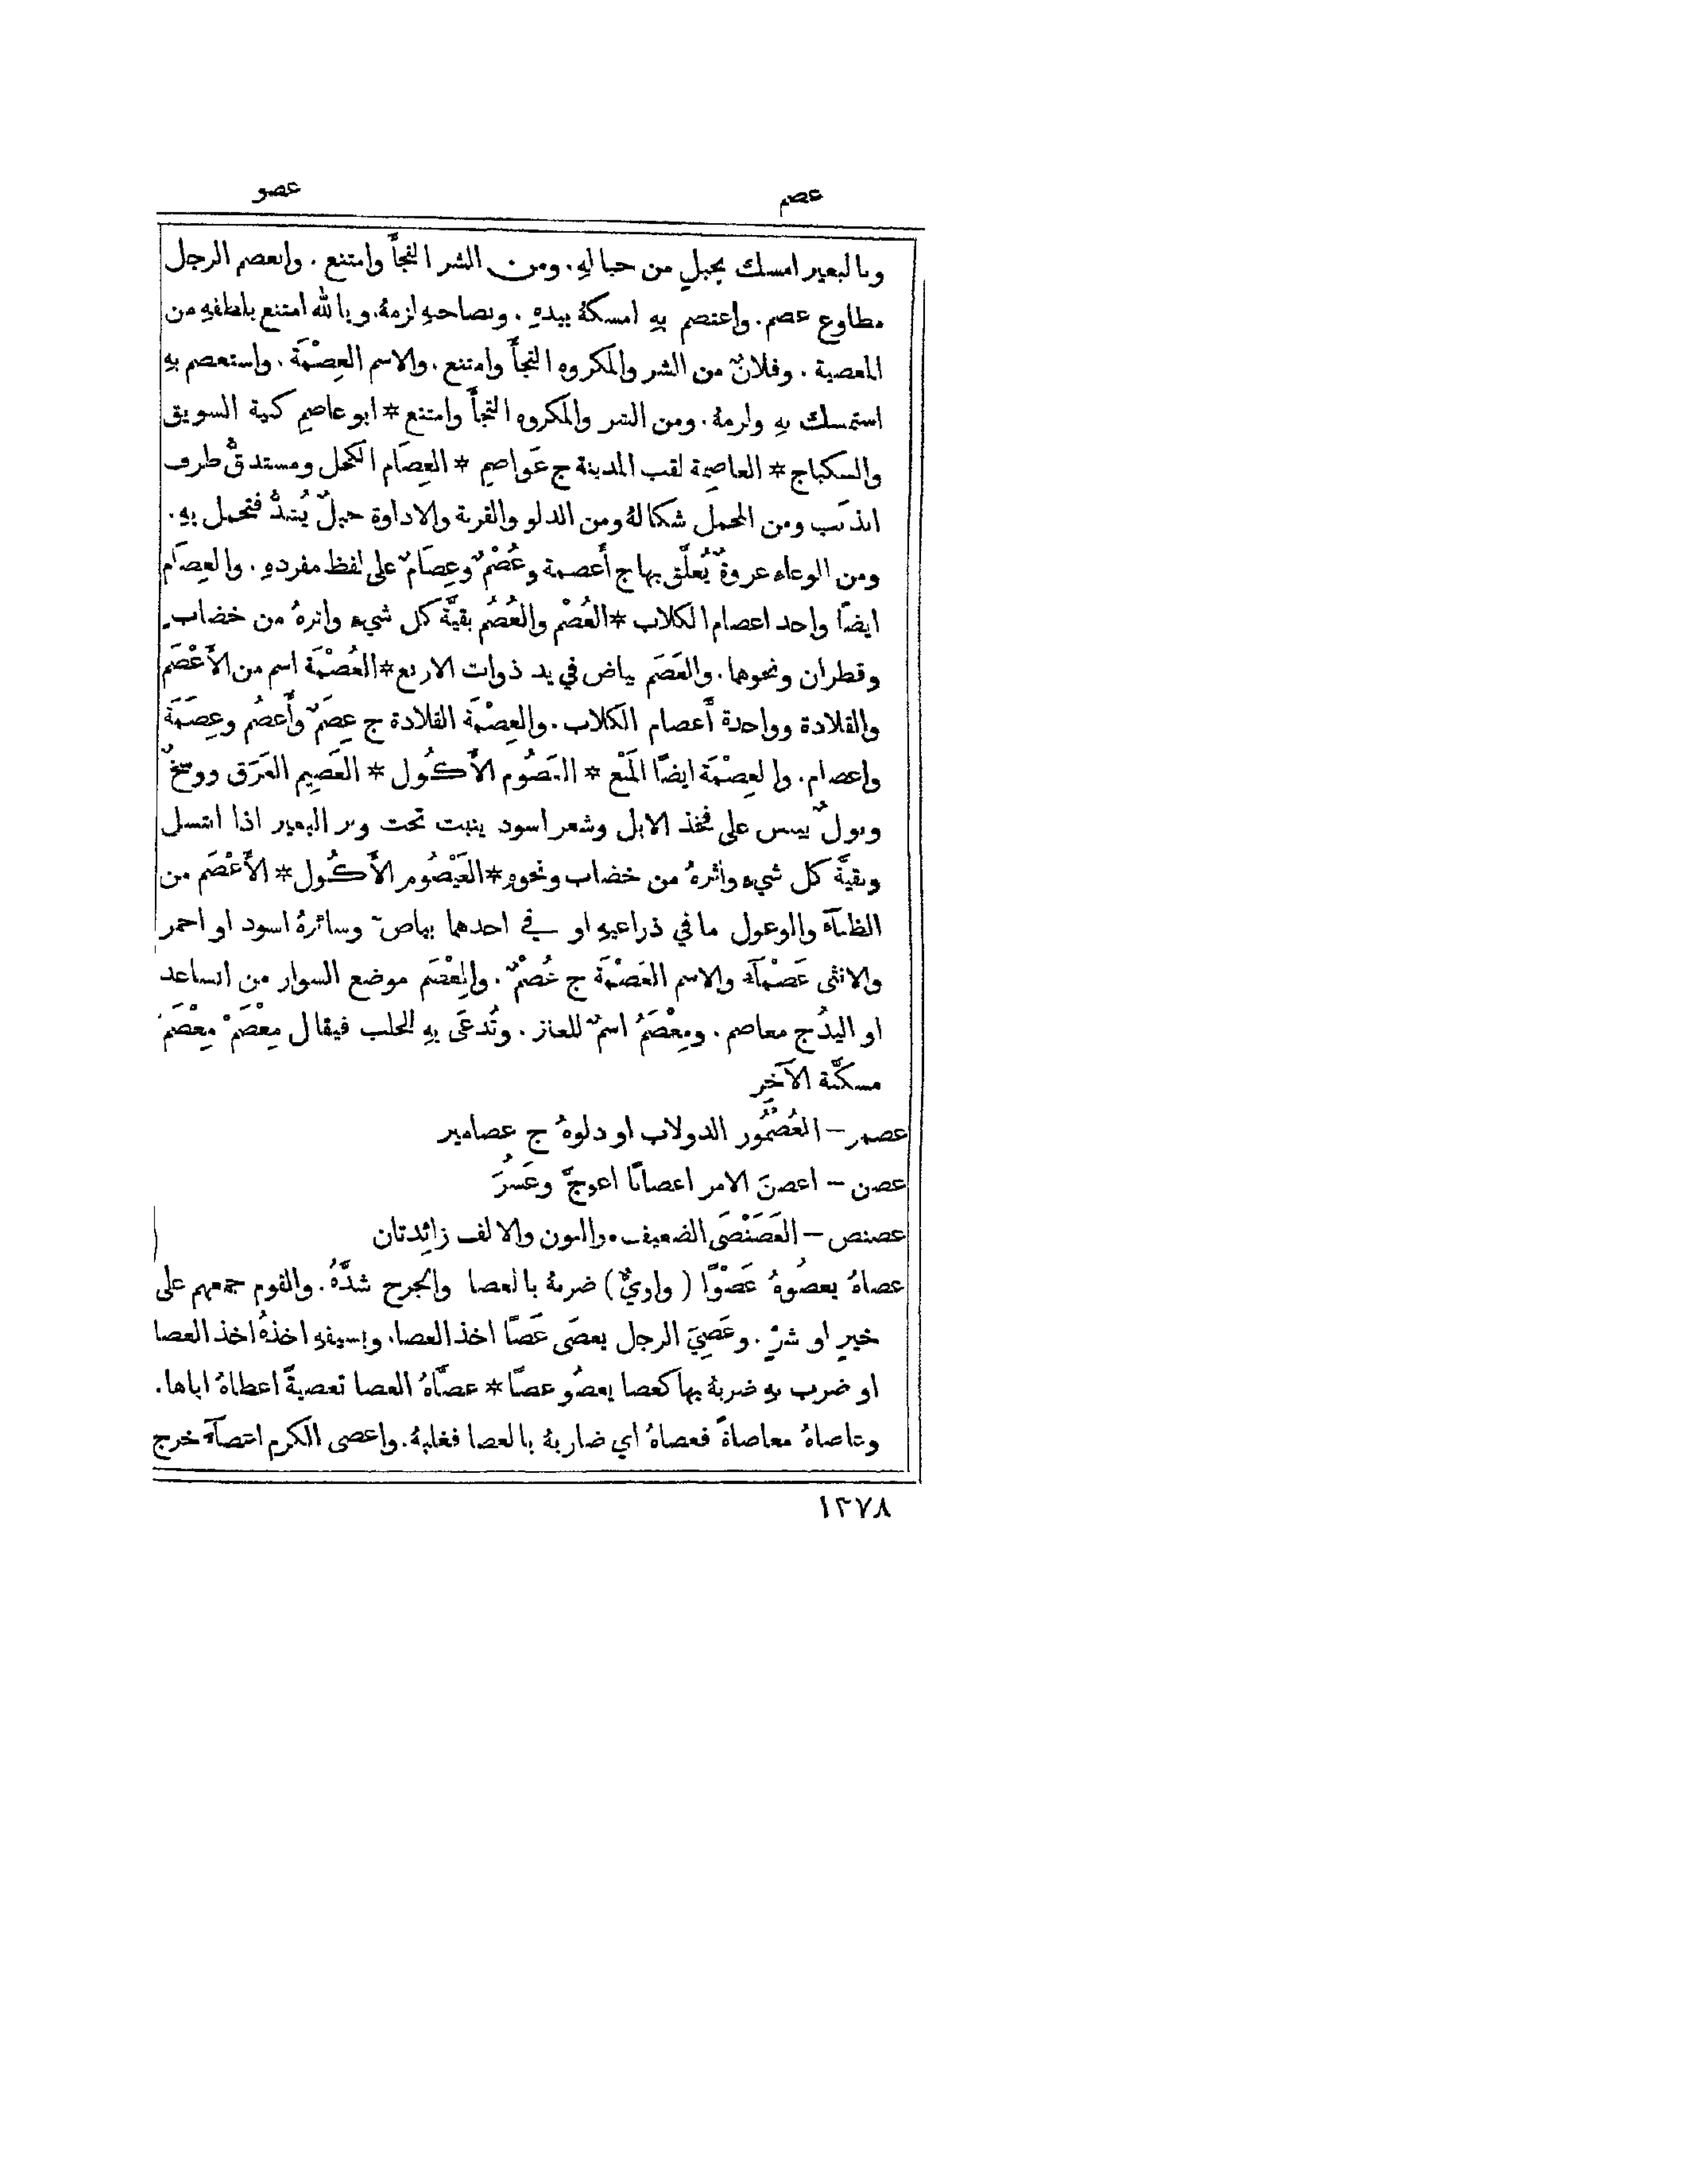 عصم
عصو
وبالبعير امسك بحبلٍ من حبالهِ. ومن الشر التجأَ وامتنع. وانعصم الرجل
مطاوع عصم. واعتصم بهِ امسكهُ بيدهِ. وبصاحبهِ لزمهُ. وبالله امتنع بلطفهِ من
المعصية. وفلانٌ من الشر والمكروه التجأَ وامتنع. والاسم العِصْمَة. واستعصم بهِ
استمسك بهِ ولزمهُ. ومن الشر والمكروه التجأَ وامتنع * ابو عاصمٍ كنية السويق
والسكباج * العاصِمة لقب المدينة ج عَواصِم * العِصَام الكحل ومستدقُّ طرف
الذَنَب ومن المحمل شكالهُ ومن الدلو والقربة والاداوة حبلٌ يُشَدُّ فتحمل بهِ.
ومن الوعاء عروةٌ يُعلَّق بها ج أَعصمة وعُصْمٌ وعِصَامٌ على لفظ مفردهِ. والعِصَام
ايضًا واحد اعصام الكلاب * العُصْم والعُصُم بقيَّة كل شيء واثرهُ من خضاب
وقطران ونحوهما. والعَصَم بياض في يد ذوات الاربع * العُصْمَة اسم من الأَعْصَم
والقلادة وواحدة أَعصام الكلاب. والعِصْمَة القلادة ج عِصَمٌ وأَعصُم وعِصَمَة
واعصام. والعِصْمَة ايضًا المَنْع * العَصُوم الأَكُول * العَصِيم العَرَق ووسخٌ
وبولٌ ييبس على فخذ الابل وشعر اسود ينبت تحت وبر البعير اذا انتسل
وبقيَّة كل شيء واثرهُ من خضاب ونحوهِ * العَيْصُوم الأَكُول * الأَعْصَم من
الظباۤء والوعول ما في ذراعيهِ او في احدهما بياضٌ وسائرهُ اسود او احمر
والانثى عَصْمَاۤء والاسم العَصْمَة ج عُصْمٌ. والمِعْصَم موضع السوار من الساعد
او اليد ج معاصم. ومِعْصَمُ اسمٌ للعنز. وتُدعَى بهِ للحلب فيقال مِعْصَمْ مِعْصَمْ
مسكَّنة الآخِر
عصمر – العُصْمُور الدولاب او دلوهُ ج عصامير
عصن – اعصنَ الامر اعصانًا اعوجَّ وعَسُرَ
عصنص – العَصَنْصَى الضعيف. والنون والالف زائِدتان
عصاهُ يعصُوهُ عَصْوًا (واويٌّ) ضربهُ بالعصا والجرح شدَّهُ. والقوم جمعهم على
خيرٍ او شرٍّ. وعَصِيَ الرجل يعصَى عَصًا اخذ العصا. وبسيفهِ اخذهُ اخذ العصا
او ضرب بهِ ضربهُ بها كعصا يعصُو عصًا * عصَّاهُ العصا تعصيةً اعطاهُ اياها.
وعاصاهُ معاصاةً فعصاهُ اي ضاربهُ بالعصا فغلبهُ. واعصى الكرم اعصاۤءً خرج
١٣٧٨